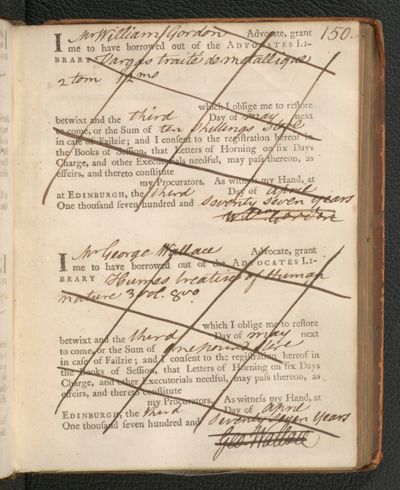 150.
I Mr William Gordon Advocate, grant
me to have borrowed out of the ADVOCATES LI-
BRARY Vargas traité de metallique
2 tom 12mo
which I oblige me to restore
betwixt and the third Day of may next
to come, or the Sum of ten shillings Ster
in case of Failzie; and I consent to the registration hereof in
the Books of Session, that Letters of Horning on six Days
Charge, and other Executorials needful, may pass thereon, as
effeirs, and thereto constitute
my Procurators. As witness my Hand, at
at EDINBURGH, the third Day of april
One thousand seven hundred and Seventy Seven years
Will Gordon
I Mr George Wallace Advocate, grant
me to have borrowed out of the ADVOCATES LI-
BRARY Humes treatise of Human
nature 3 vol. 8vo
which I oblige me to restore
betwixt and the third Day of may next
to come, or the Sum of one pound Ster
in case of Failzie; and I consent to the registration hereof in
the Books of Session, that Letters of Horning on six Days
Charge, and other Executorials needful, may pass thereon, as
effeirs, and thereto constitute
my Procurators. As witness my Hand, at
EDINBURGH, the third Day of april
One thousand seven hundred and Seventy Seven years
Geo Wallace